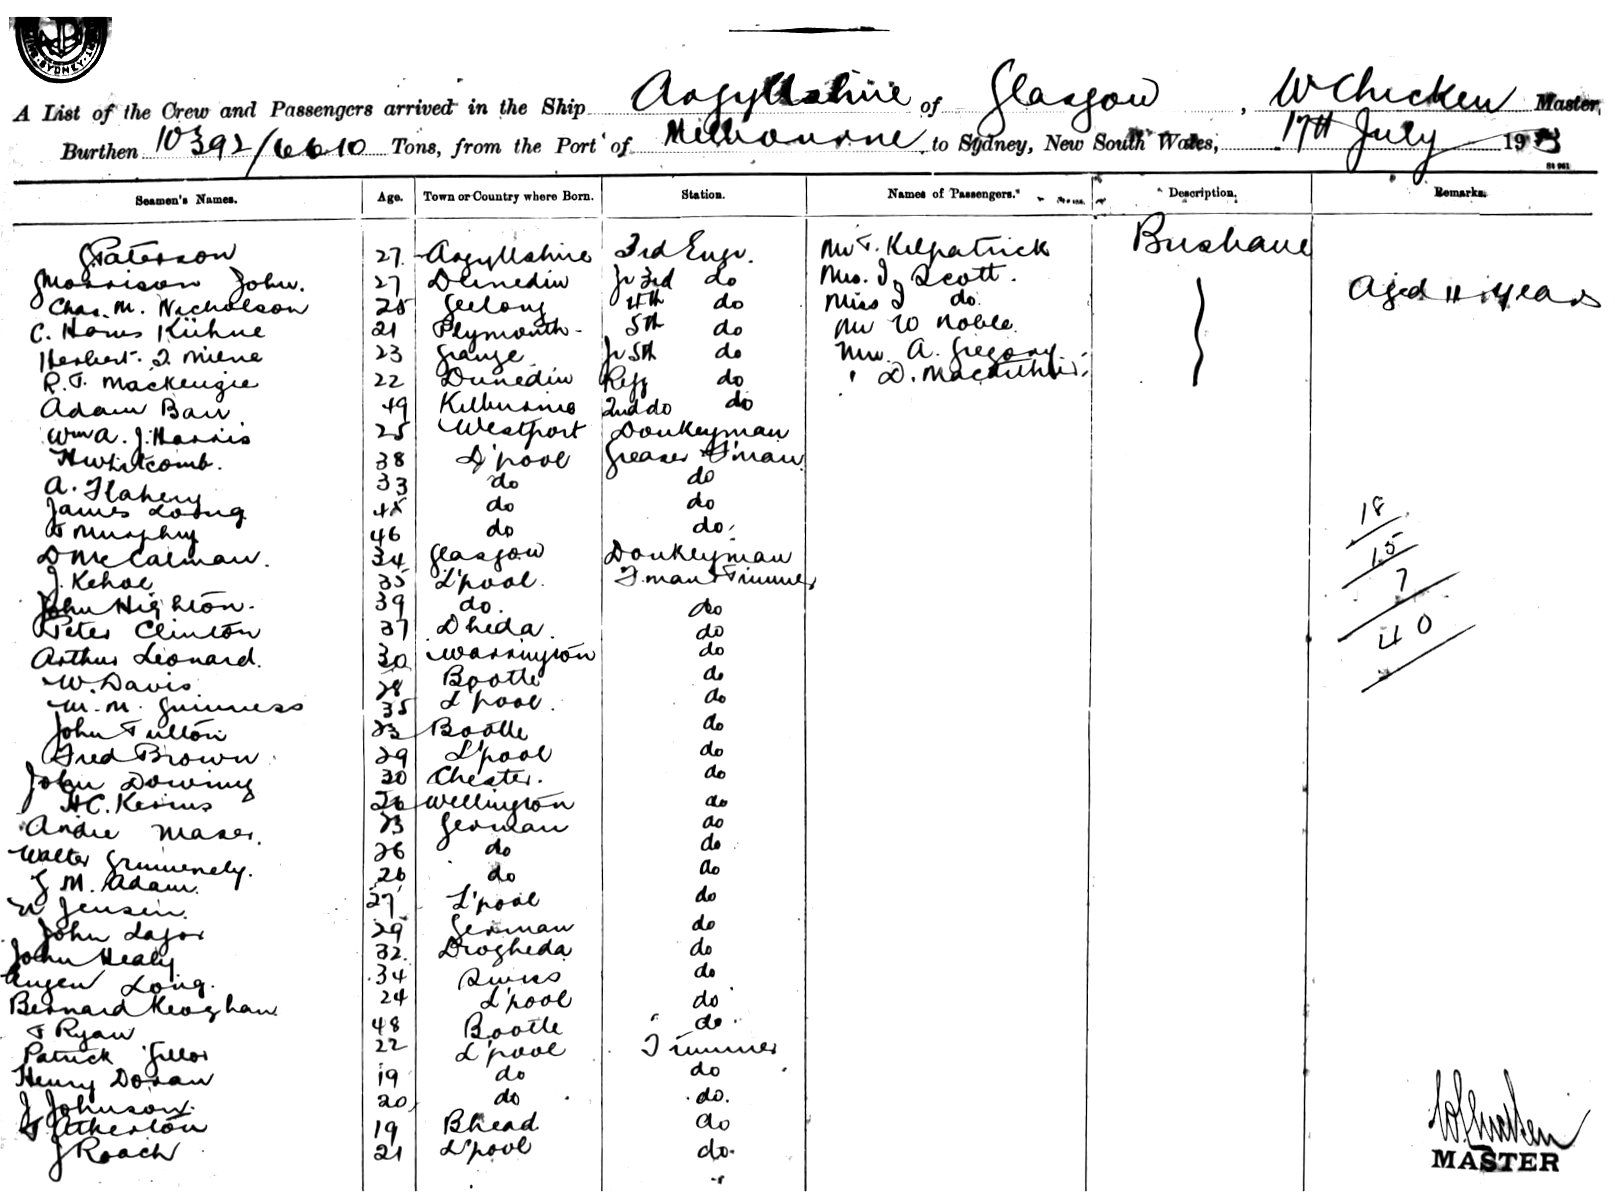 SYDNEY
A List of the Crew and Passengers arrived in the Ship Argyllshire of Glasgow, W Chicken Master,
Burthen 10392/6610 Tons, from the Port of Melbourne to Sydney, New South Wales, 17th July 1913
Seamen's Names. Age. Town or Country where Born. Station. Names of Passengers. Description. Remarks.
J Paterson 27 Argyllshire 3rd Engr. Mr T. Kilpatrick Brisbane
Morrison John. 27 Dunedin Jr 3rd do Mrs. J. Scott. Aged 11 years
Chas. M. Nicholson 25 Geelong 4th do Miss J do
C. Hans Kühne 21 Plymouth 5th do Mr W Noble
Herbert. J. Milne 23 Grange Jr 5th do Mrs A. Gregory
R. T. Mackenzie 22 Dunedin Refg do D. Macarthur
Adam Barr 49 Kilburnie 2nd do do
Wm A. J. Harris 25 Westport Donkeyman
H Whitcomb. 38 L'pool Greaser F'man
A. Flahery 33 do do
James Loong 45 do do
T Murphy 46 do do
18
D McCalman. 34 Glasgow Donkeyman
15
J. Kehoe 35 L'pool. F'man & Trimmer
7
John Highton. 39 do. do
Peter Clinton 37 Dheda. do
40
Arthur Leonard. 30 Warrington do
W. Davis 28 Bootle do
M. M. Guinness 35 L'pool. do
John Fulton 23 Bootle do
Fred Brown 29 L'pool do
John Dowing 30 Chester. do
H C. Kerins 26 Wellington do
Andre Maser. 23 German do
Walter 26 do do
J M. Adam. 26 do do
W Jensen. 27 L'pool do
John Lafor 29 German do
John Healy 32 Drogheda do
Eugen Long. 34 Swiss do
Bernard Keoghan 24 L'pool do
T Ryan 48 Bootle do.
Patrick 22 L'pool Trimmer
Henry Doran 19 do do
J Johnson. 20 do do.
T. Atherton 19 Bhead do
J Roach 21 L'pool do.
W Chicken
MASTER